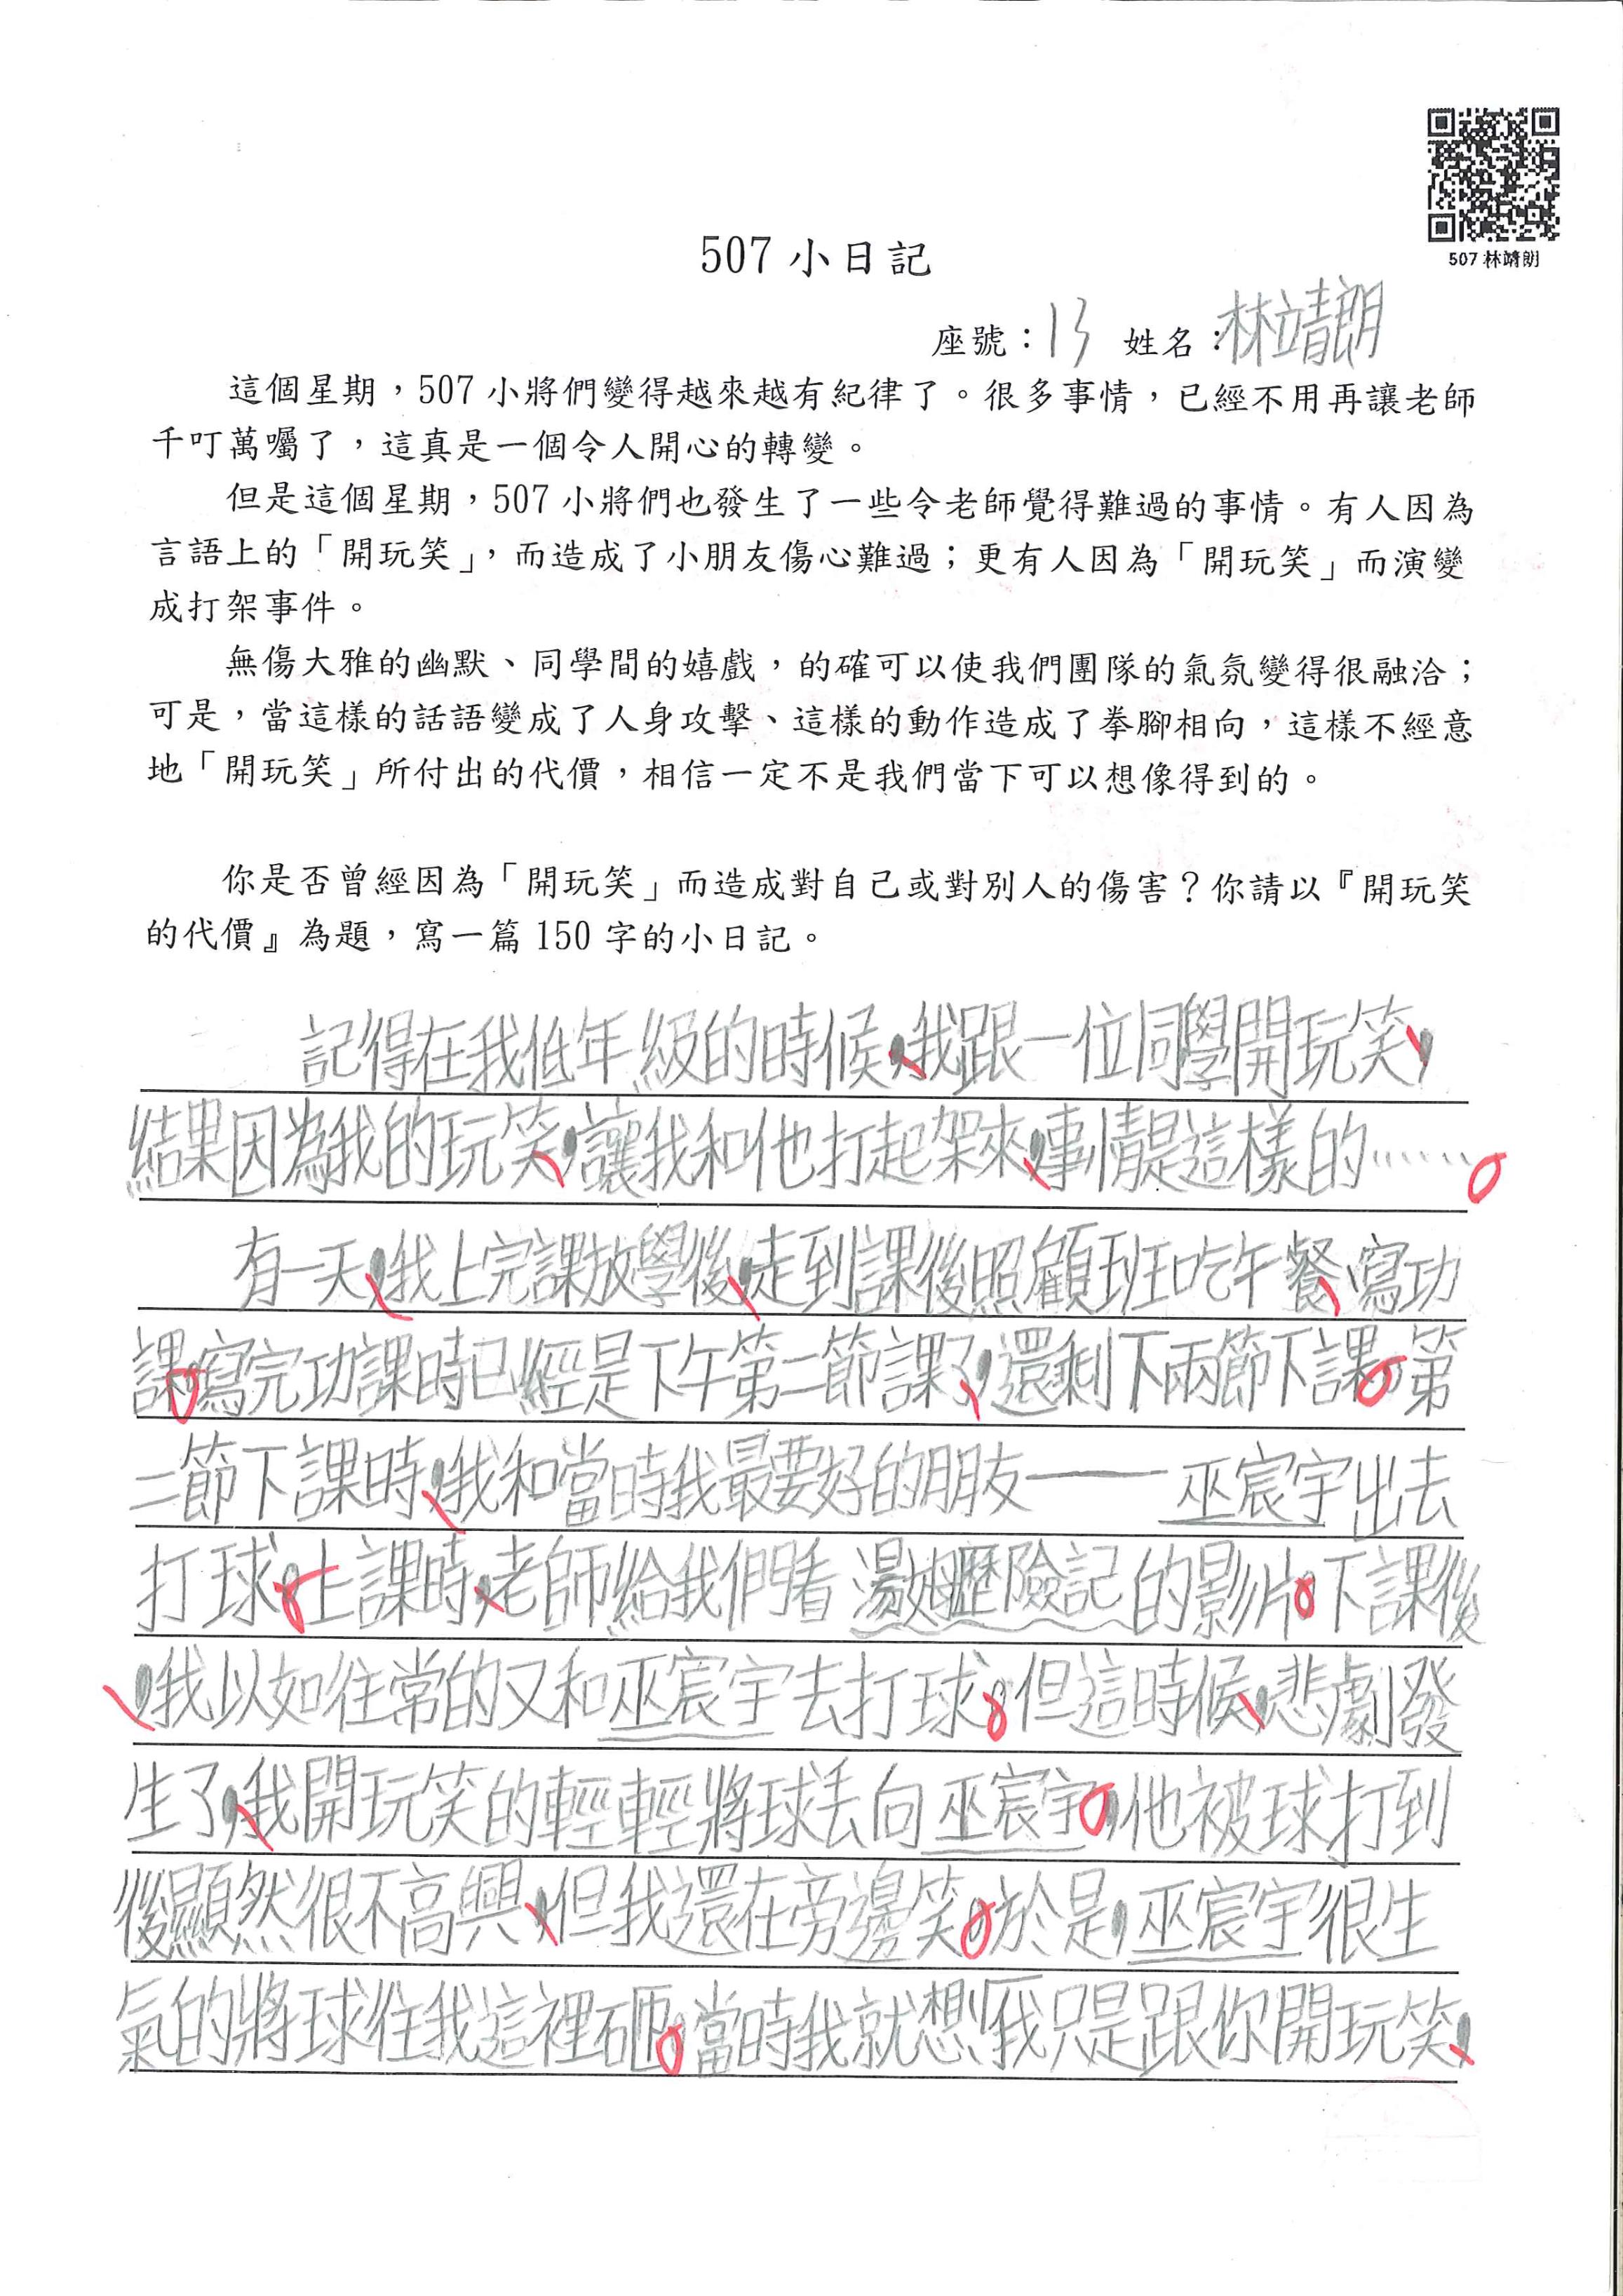 507 林靖朗
507 小日記
座號：13 姓名：林靖朗
這個星期，507 小將們變得越來越有紀律了。很多事情，已經不用再讓老師
千叮萬囑了，這真是一個令人開心的轉變。
但是這個星期，507 小將們也發生了一些令老師覺得難過的事情。有人因為
言語上的「開玩笑」，而造成了小朋友傷心難過；更有人因為「開玩笑」而演變
成打架事件。
無傷大雅的幽默、同學間的嬉戲，的確可以使我們團隊的氣氛變得很融洽；
可是，當這樣的話語變成了人身攻擊、這樣的動作造成了拳腳相向，這樣不經意
地「開玩笑」所付出的代價，相信一定不是我們當下可以想像得到的。
你是否曾經因為「開玩笑」而造成對自己或對別人的傷害？你請以『開玩笑
的代價』為題，寫一篇 150 字的小日記。
記得在我低年級的時候，我跟一位同學開玩笑，
結果因為我的玩笑，讓我和他打起架來，事情是這樣的……。
有一天，我上完課放學後，走到課後照顧班吃午餐、寫功
課。寫完功課時已經是下午第二節課了，還剩下兩節下課。第
二節下課時，我和當時我最要好的朋友——巫宸宇出去
打球。上課時，老師給我們看湯姆歷險記的影片。下課後
，我以如往常的又和巫宸宇去打球。但這時候，悲劇發
生了，我開玩笑的輕輕將球丟向巫宸宇。他被球打到
後顯然很不高興，但我還在旁邊笑。於是，巫宸宇很生
氣的將球住我這裡砸。當時我就想「我只是跟你開玩笑，